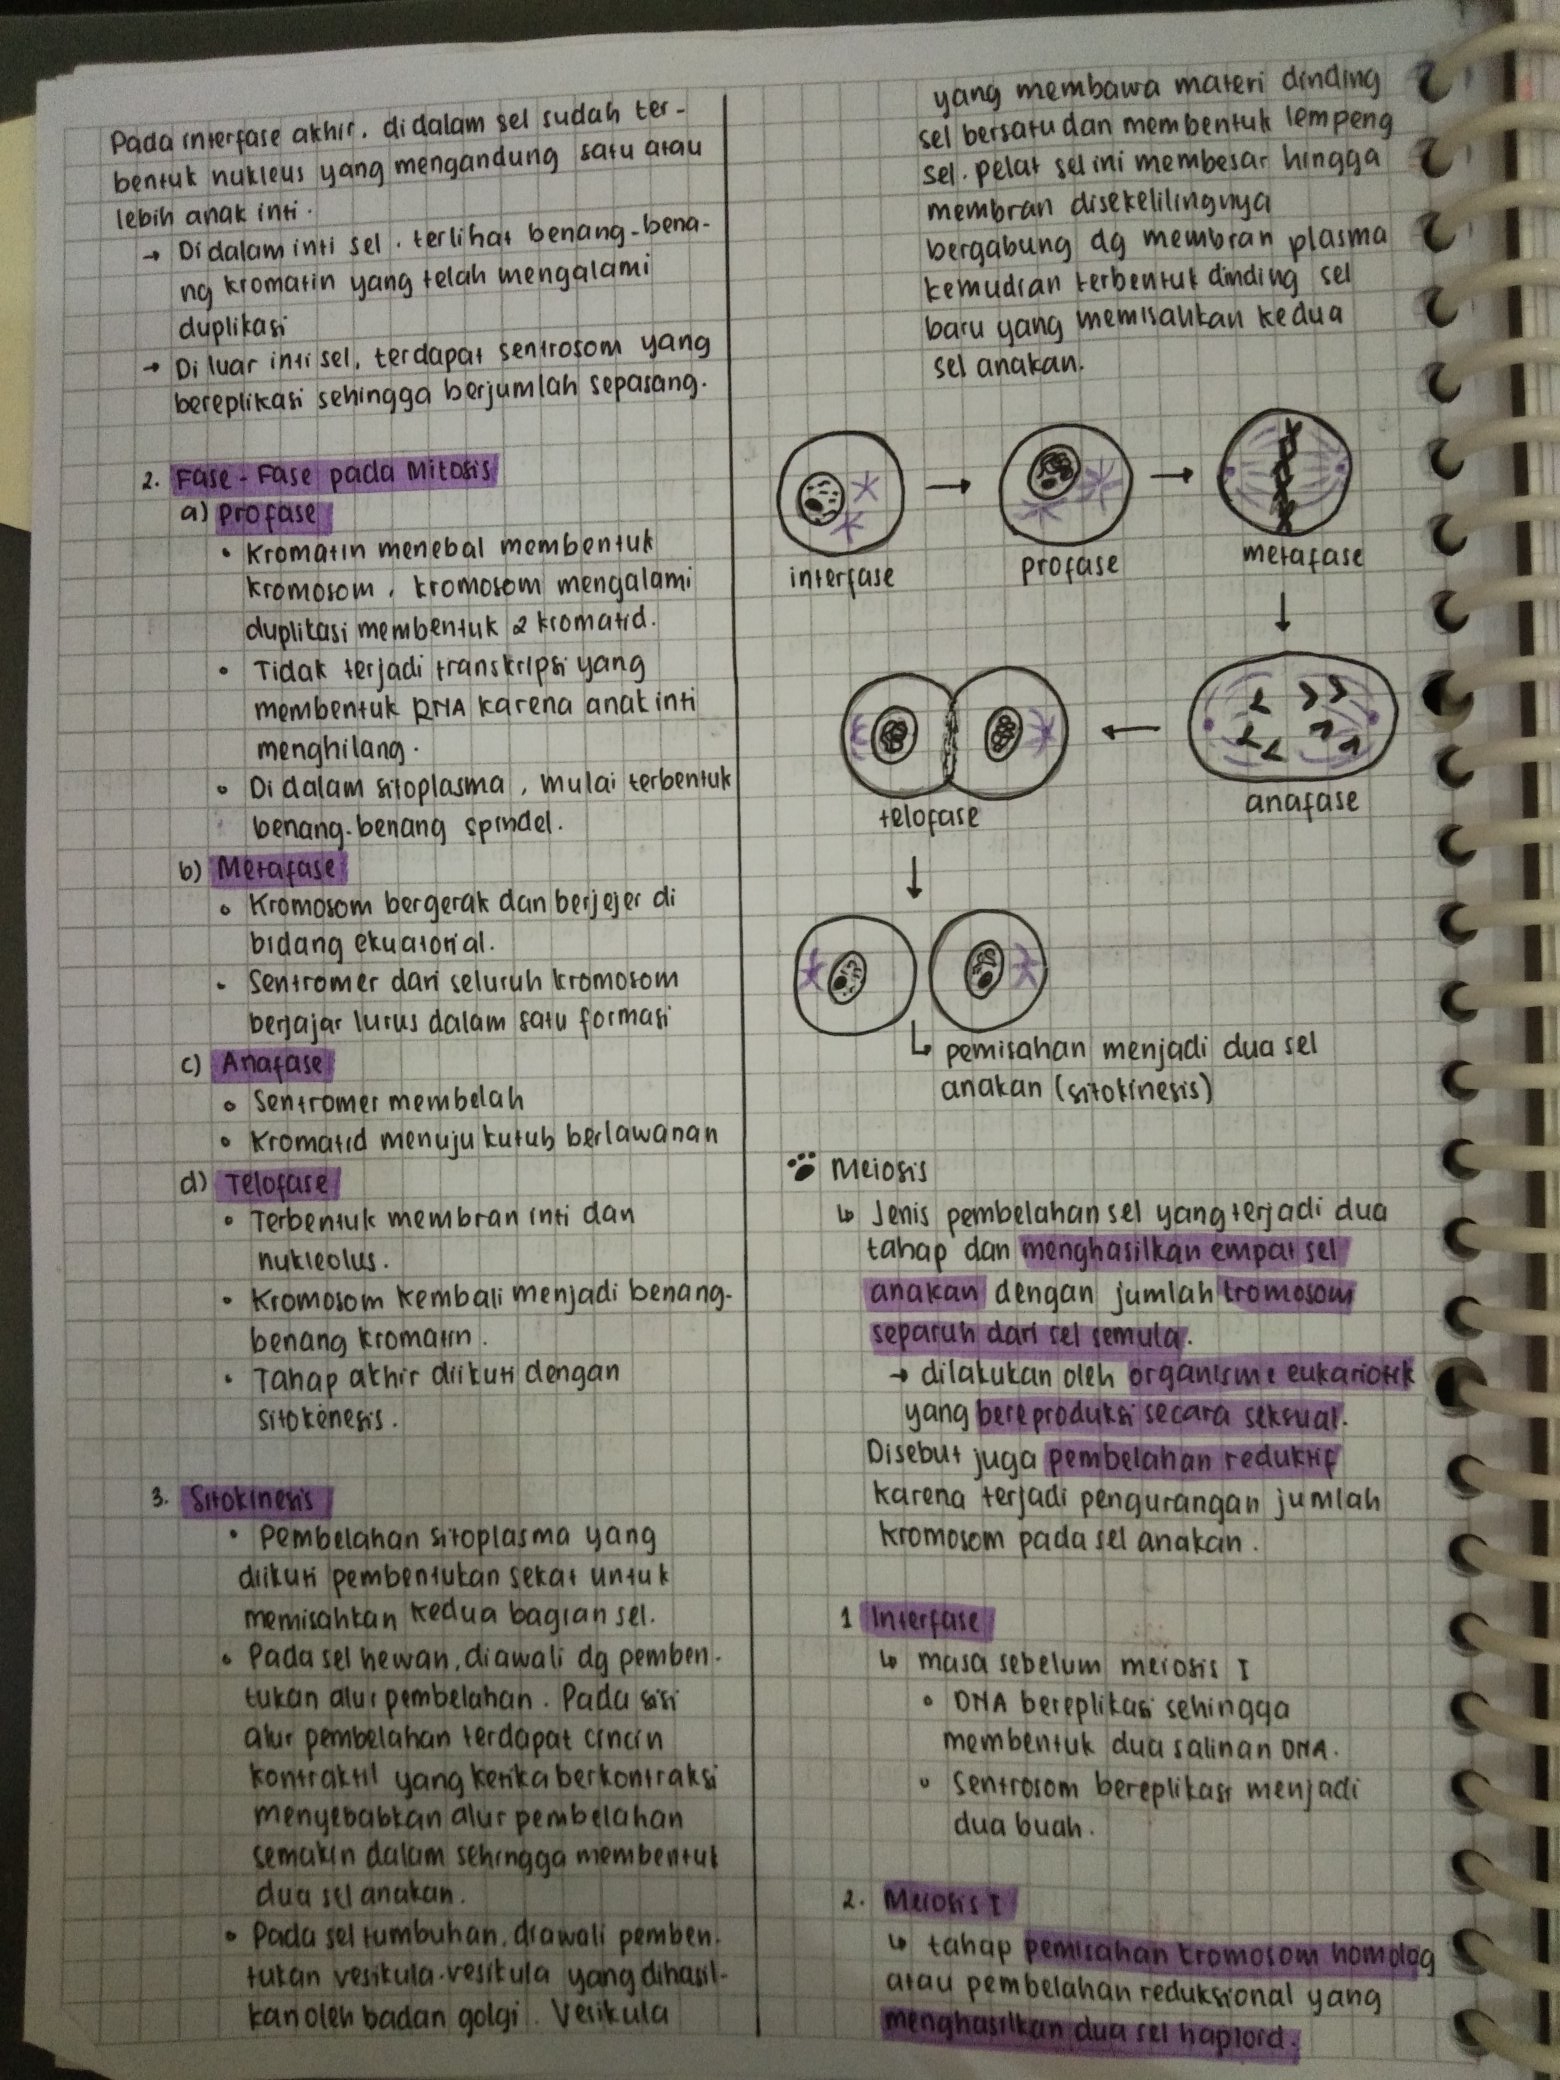 Pada interfase akhir, di dalam sel sudah ter-
bentuk nukleus yang mengandung satu atau
lebih anak inti.
→ Di dalam inti sel, terlihat benang-bena-
ng kromatin yang telah mengalami
duplikasi
→ Di luar inti sel, terdapat sentrosom yang
bereplikasi sehingga berjumlah sepasang.
2. Fase - Fase pada Mitosis
a) Profase
• Kromatin menebal membentuk
kromosom, kromosom mengalami
duplikasi membentuk 2 kromatid.
• Tidak terjadi transkripsi yang
membentuk RNA karena anak inti
menghilang.
• Di dalam sitoplasma, mulai terbentuk
benang-benang spindel.
b) Metafase
• Kromosom bergerak dan berjejer di
bidang ekuatorial.
• Sentromer dari seluruh kromosom
berjajar lurus dalam satu formasi
c) Anafase
• Sentromer membelah
• Kromatid menuju kutub berlawanan
d) Telofase
• Terbentuk membran inti dan
nukleolus.
• Kromosom kembali menjadi benang-
benang kromatin.
• Tahap akhir diikuti dengan
sitokenesis.
3. Sitokinesis
• Pembelahan sitoplasma yang
diikuti pembentukan sekat untuk
memisahkan kedua bagian sel.
• Pada sel hewan, diawali dg pemben-
tukan alur pembelahan. Pada sisi
alur pembelahan terdapat cincin
kontraktil yang ketika berkontraksi
menyebabkan alur pembelahan
semakin dalam sehingga membentuk
dua sel anakan.
• Pada sel tumbuhan, diawali pemben-
tukan vesikula-vesikula yang dihasil-
kan oleh badan golgi. Vesikula
yang membawa materi dinding
sel bersatu dan membentuk lempeng
sel. pelat sel ini membesar hingga
membran disekelilingnya
bergabung dg membran plasma
kemudian terbentuk dinding sel
baru yang memisahkan kedua
sel anakan.
interfase → profase → metafase
↓
telofase ← anafase
↓
↳ pemisahan menjadi dua sel
anakan (sitokinesis)
Meiosis
↳ Jenis pembelahan sel yang terjadi dua
tahap dan menghasilkan empat sel
anakan dengan jumlah kromosom
separuh dari sel semula.
→ dilakukan oleh organisme eukariotik
yang bereproduksi secara seksual.
Disebut juga pembelahan reduktif
karena terjadi pengurangan jumlah
kromosom pada sel anakan.
1 Interfase
↳ masa sebelum meiosis I
• DNA bereplikasi sehingga
membentuk dua salinan DNA.
• Sentrosom bereplikasi menjadi
dua buah.
2. Meiosis I
↳ tahap pemisahan kromosom homolog
atau pembelahan reduksional yang
menghasilkan dua sel haploid.